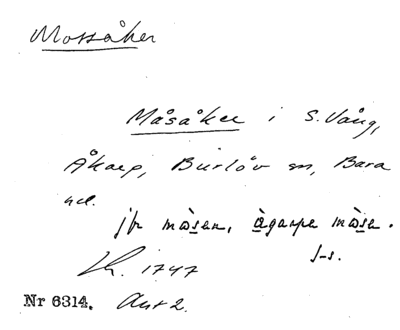 Mossåker
Måsåker i S. Vång,
Åkarp, Burlöv sn, Bara
hd.
jfr må̀sen, à̱garpe må̀se.
Lh. 1747 s-s.
Nr 6314. Avt 2.